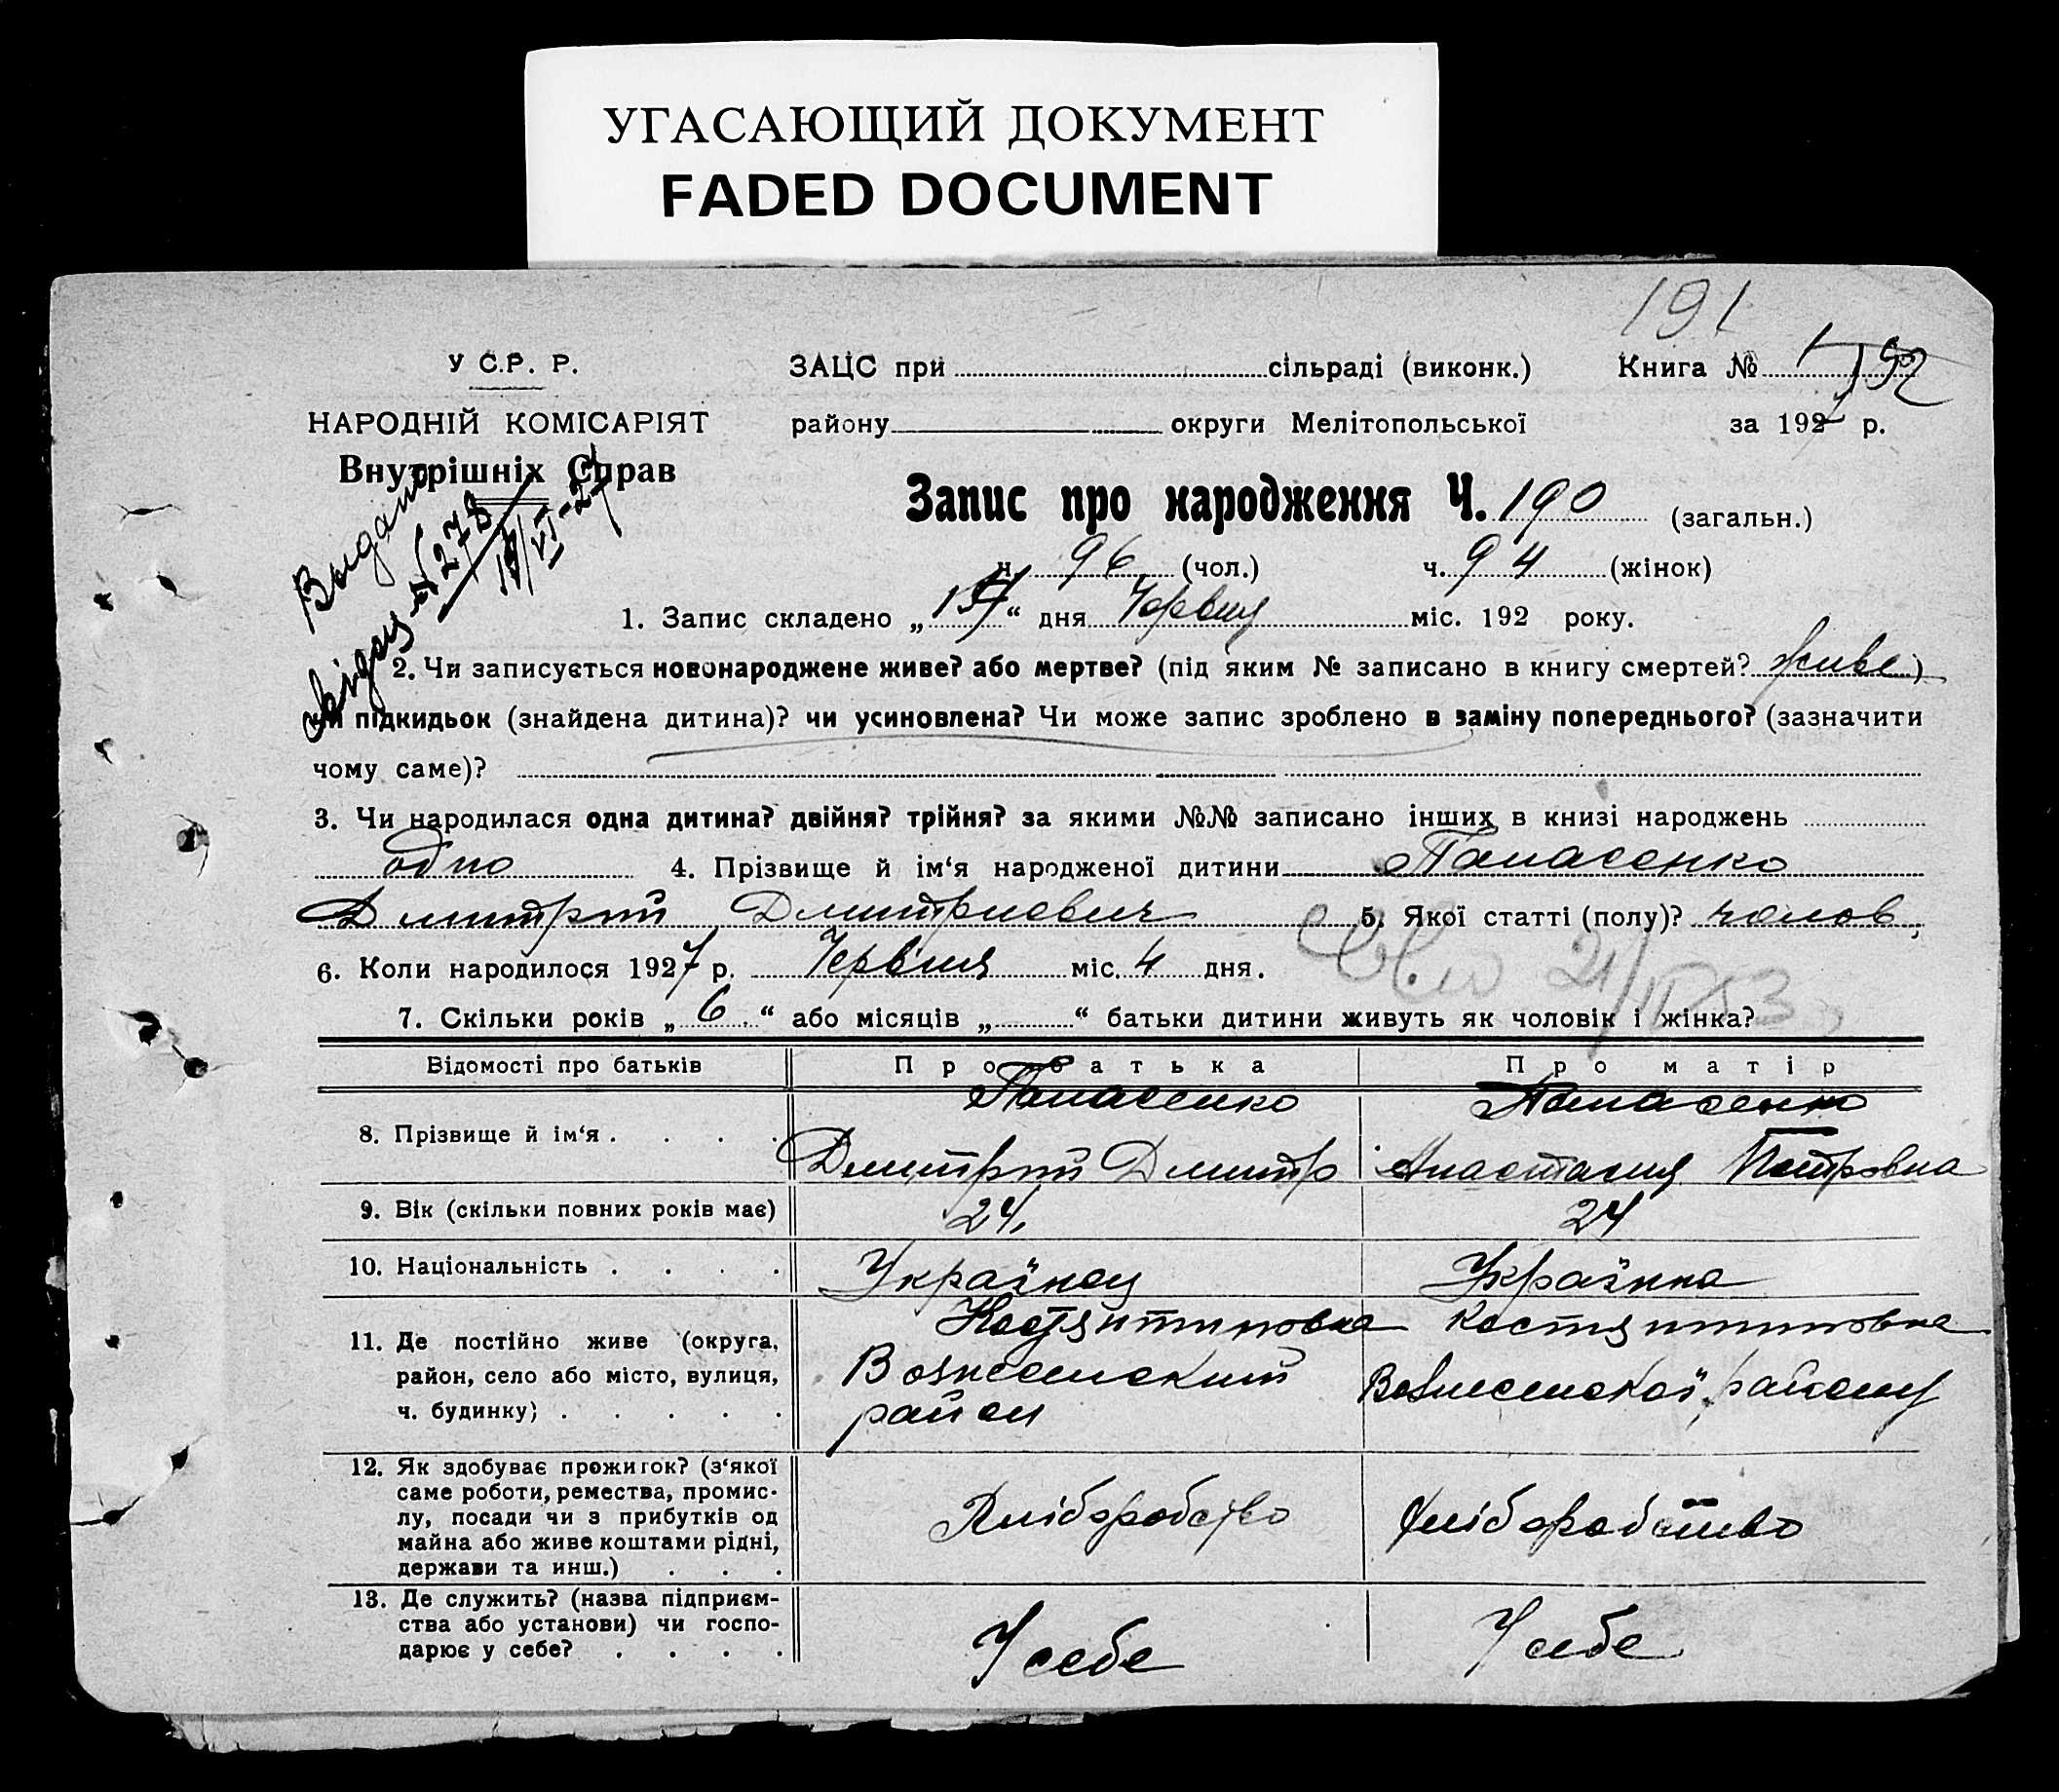 УГАСАЮЩИЙ ДОКУМЕНТ
FADED DOCUMENT
191
У С.Р. Р.
ЗАЦС при сільраді (виконк.) Книга № 1 192
НАРОДНІЙ КОМІСАРІЯТ
району округи Мелітопольської за 1927 р.
Внутрішніх Справ
Запис про народження Ч. 190 (загальн.)
ч. 96 (чол.) ч. 94 (жінок)
1. Запис складено „ “ дня Червня міс. 192 року.
2. Чи записується новонароджене живе? або мертве? (під яким № записано в книгу смертей? живе)
чи підкидьок (знайдена дитина)? чи усиновлена? Чи може запис зроблено в заміну попереднього? (зазначити
чому саме)?
3. Чи народилася одна дитина? двійня? трійня? за якими №№ записано інших в книзі народжень
одно 4. Прізвище й ім‘я народженої дитини Панасенко
Дмитрий Дмитриевич 5. Якої статті (полу)? чолов
6. Коли народилося 1927 р. Червня міс. 4 дня.
7. Скільки років „ 6 “ або місяців „ “ батьки дитини живуть як чоловік і жінка?
Відомості про батьків Про батька Про матір
Панасенко Панасенко
8. Прізвище й ім‘я . . . .
Дмитрий Дмитр Анастасия Петровна
9. Вік (скільки повних років має) 24. 24
10. Національність . . . . Українец Українка
11. Де постійно живе (округа,
район, село або місто, вулиця,
ч. будинку) . . . . .
Костянтиновка
Вознесенский
район
Костянтиновка
Вознесенскої району
12. Як здобуває прожиток? (з‘якої
саме роботи, ремества, промис-
лу, посади чи з прибутків од
майна або живе коштами рідні,
держави та инш.) . . .
Хліборобство Хліборобство
13. Де служить? (назва підприєм-
ства або установи) чи госпо-
дарює у себе? . . . .
У себе У себе